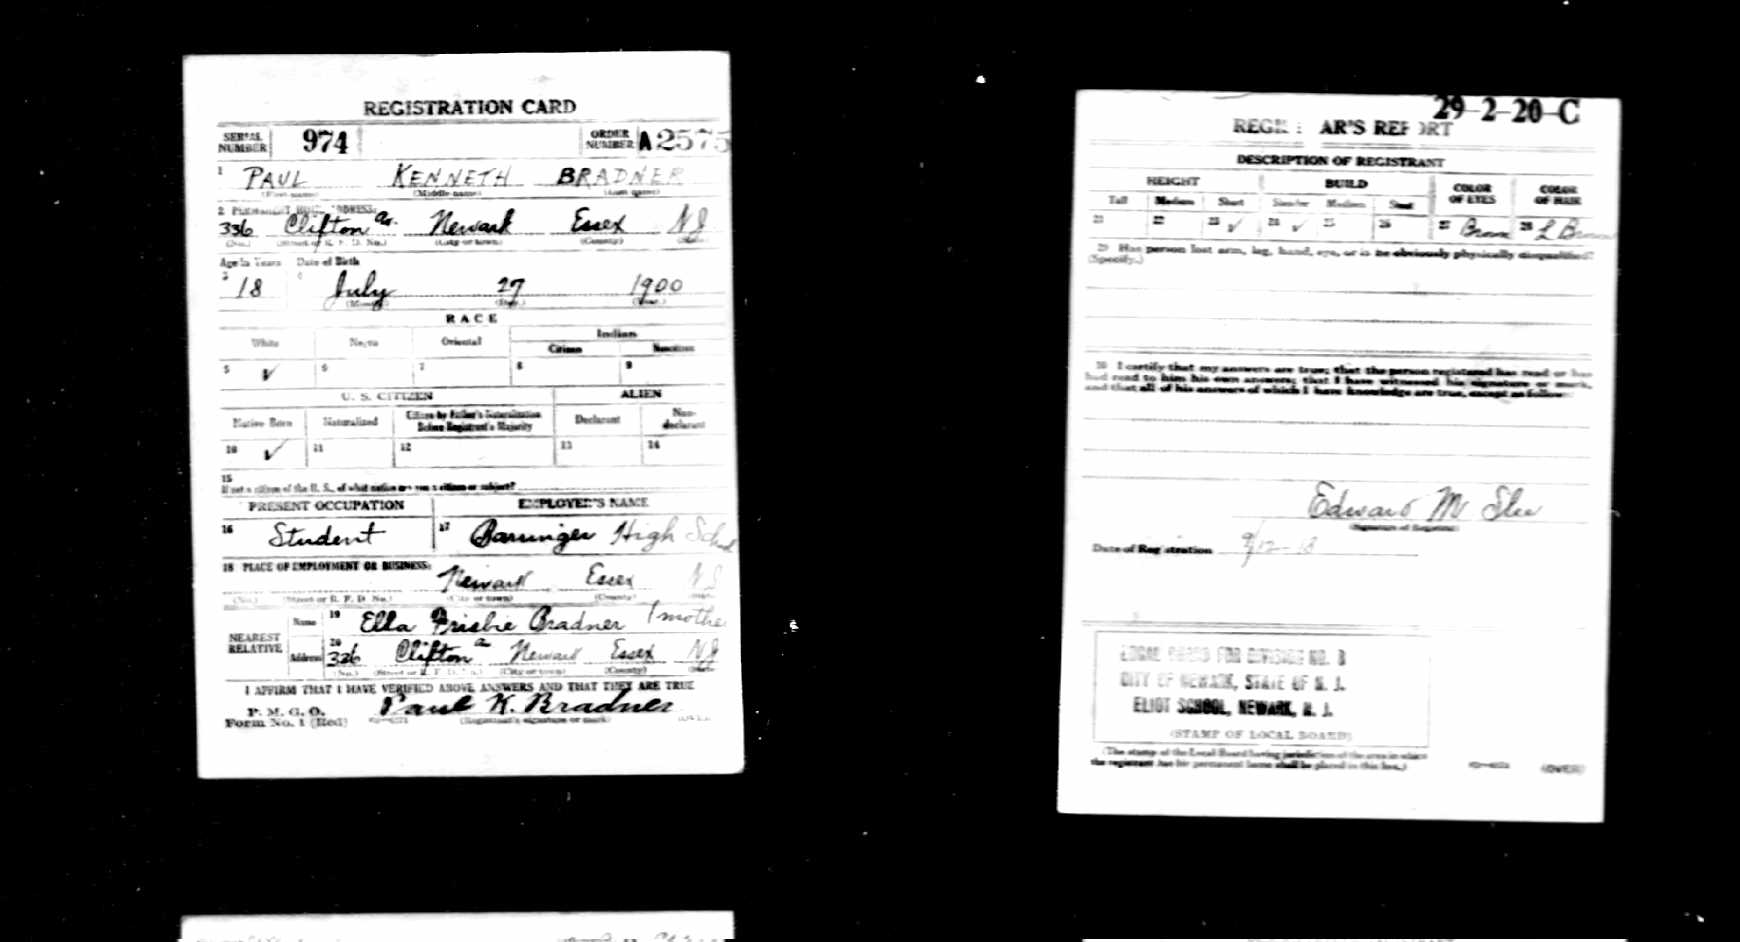 REGISTRATION CARD
SERIAL NUMBER 974 ORDER NUMBER A2575
1 PAUL KENNETH BRADNER
(First name) (Middle name) (Last name)
2 PERMANENT HOME ADDRESS:
336 Clifton av. Newark Essex NJ
(No.) (Street or R. F. D. No.) (City or town) (County) (State)
Age in Years Date of Birth
3 18 4 July 27 1900
(Month) (Day) (Year)
RACE
White Negro Oriental Indian
Citizen Noncitizen
5 ✓ 6 7 8 9
U. S. CITIZEN ALIEN
Native Born Naturalized Citizen by Father's Naturalization Before Registrant's Majority Declarant Non-declarant
10 ✓ 11 12 13 14
15
If not a citizen of the U. S., of what nation are you a citizen or subject?
PRESENT OCCUPATION EMPLOYER'S NAME
16 Student 17 Barringer High School
18 PLACE OF EMPLOYMENT OR BUSINESS:
Newark Essex NJ
(No.) (Street or R. F. D. No.) (City or town) (County) (State)
NEAREST RELATIVE Name 19 Ella Frisbie Bradner (mother
Address 20 336 Clifton a Newark Essex NJ
(No.) (Street or R. F. D. No.) (City or town) (County) (State)
I AFFIRM THAT I HAVE VERIFIED ABOVE ANSWERS AND THAT THEY ARE TRUE
P. M. G. O.
Form No. 1 (Red) Paul K. Bradner
(Registrant's signature or mark) (OVER)
29-2-20-C
REGISTRAR'S REPORT
DESCRIPTION OF REGISTRANT
HEIGHT BUILD COLOR OF EYES COLOR OF HAIR
Tall Medium Short Slender Medium Stout
21 22 23 ✓ 24 ✓ 25 26 27 Brown 28 L Brown
29 Has person lost arm, leg, hand, eye, or is he obviously physically disqualified?
(Specify.)
30 I certify that my answers are true; that the person registered has read or has
had read to him his own answers; that I have witnessed his signature or mark,
and that all of his answers of which I have knowledge are true, except as follows:
Edward M
(Signature of Registrar)
Date of Registration 9/12-18
LOCAL BOARD FOR DIVISION NO. 8
CITY OF NEWARK, STATE OF N. J.
ELIOT SCHOOL, NEWARK, N. J.
(STAMP OF LOCAL BOARD)
(The stamp of the Local Board having jurisdiction of the area in which
the registrant has his permanent home shall be placed in this box.)
(OVER)